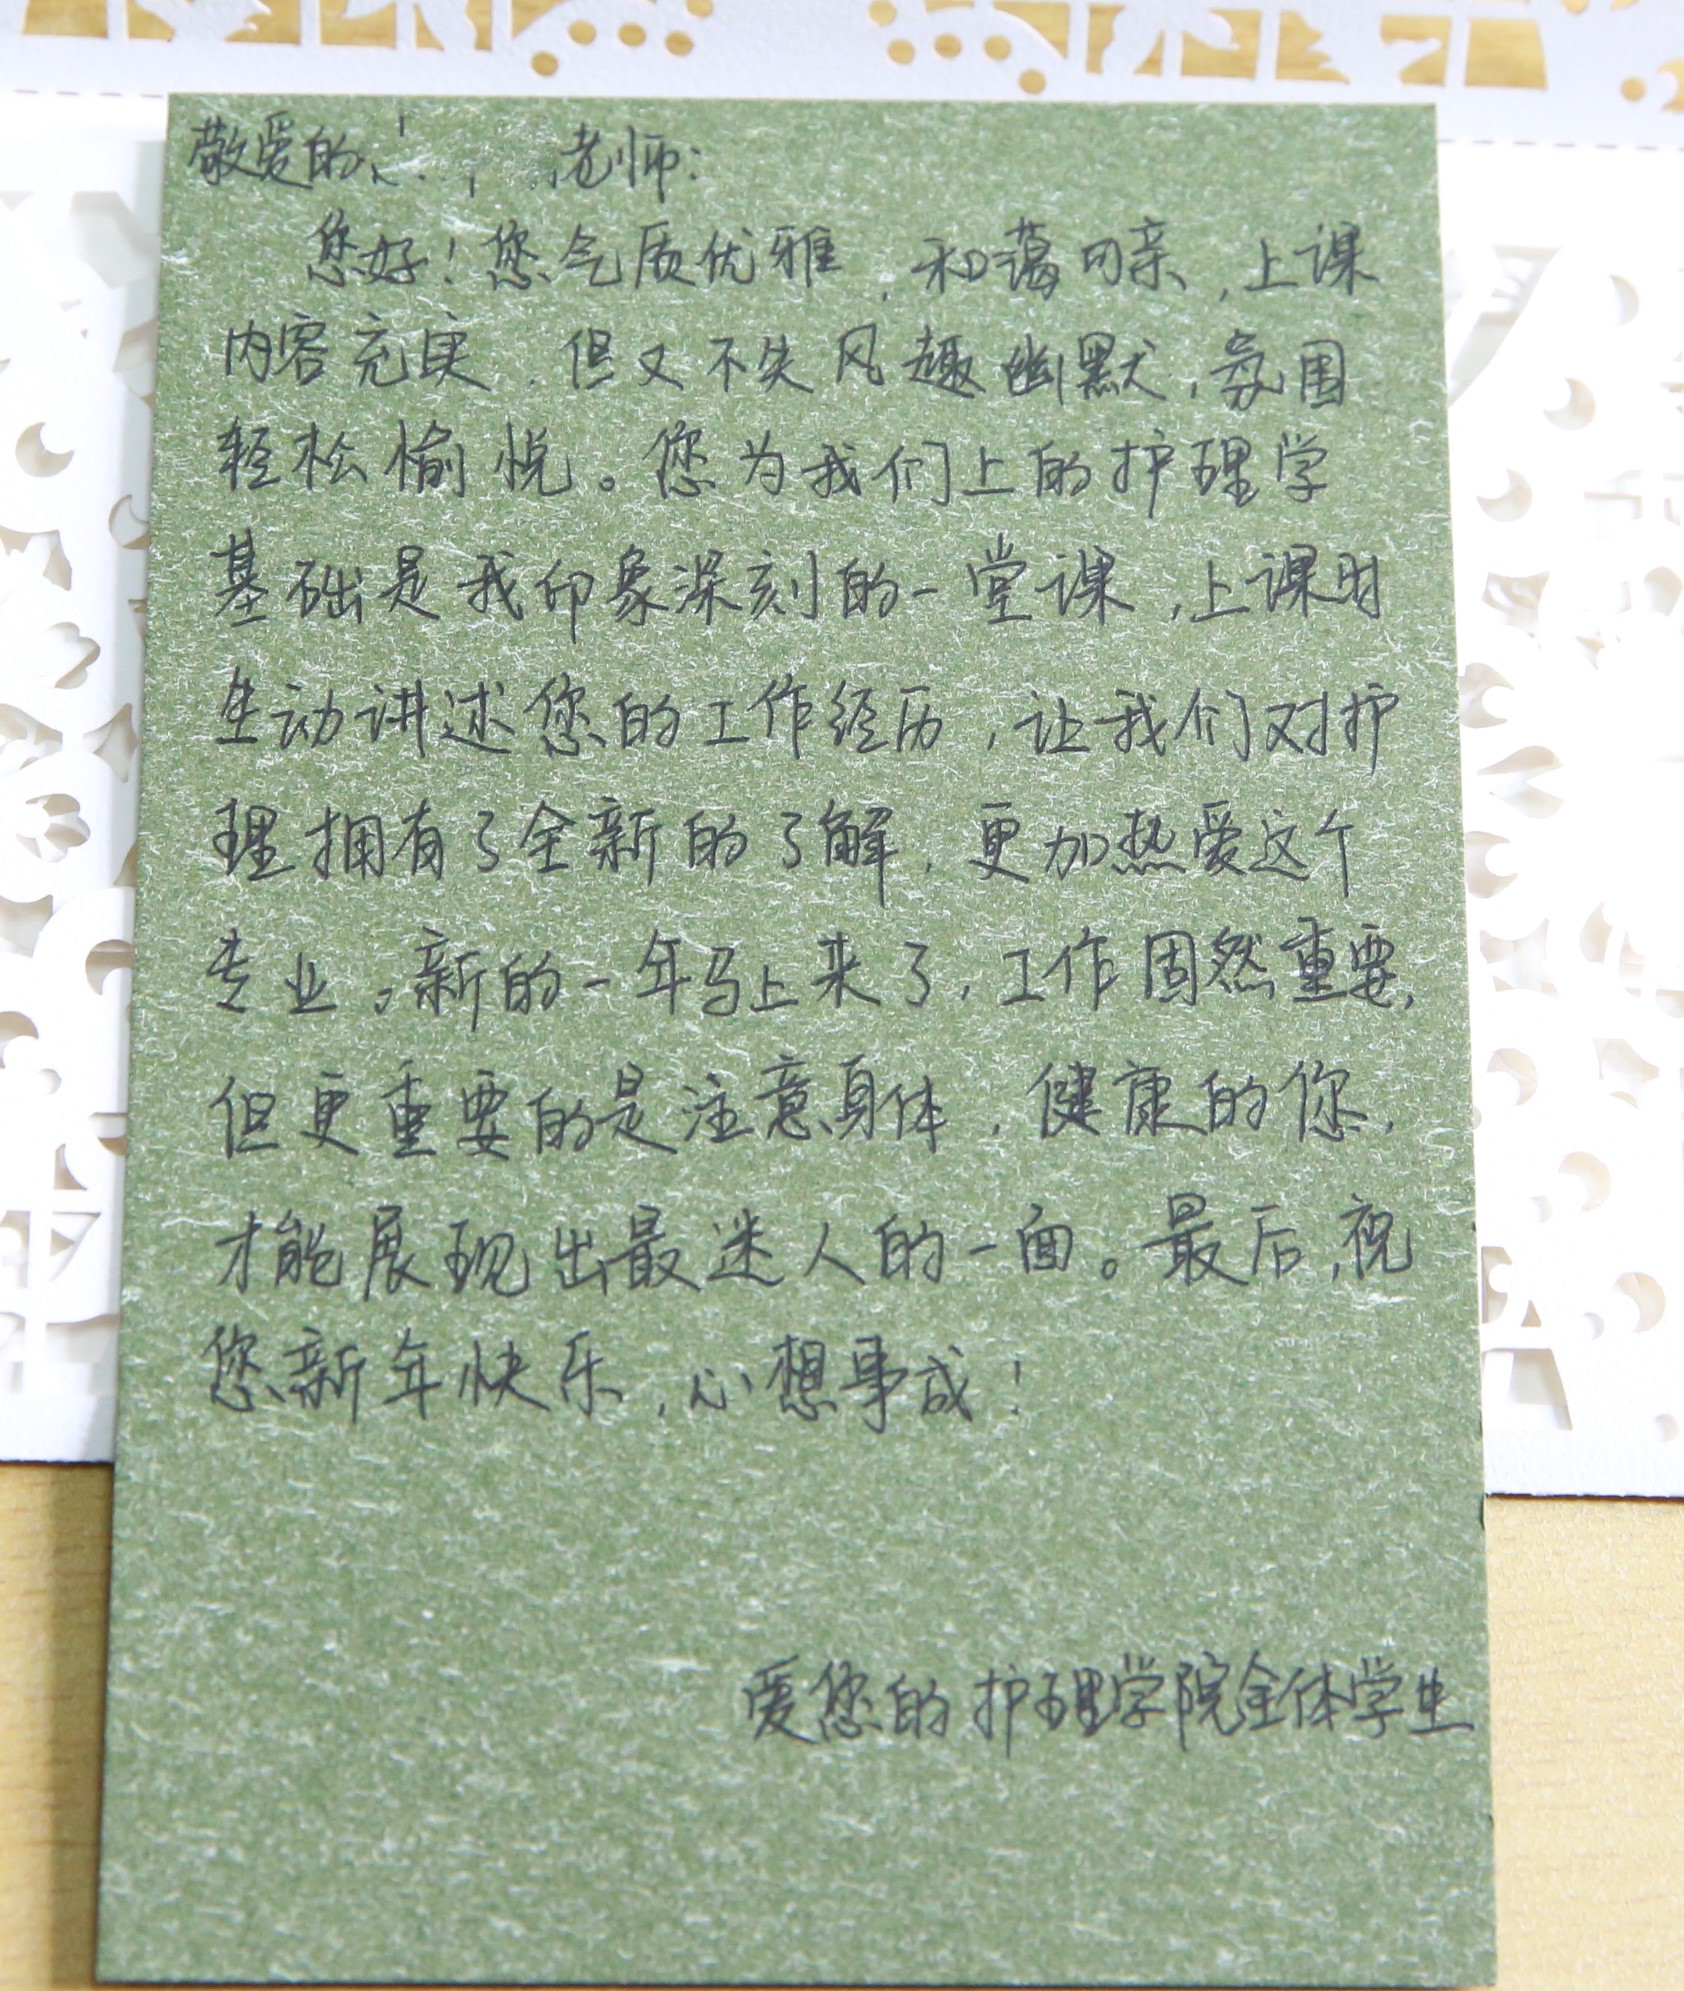 敬爱的 老师:
您好!您气质优雅,和蔼可亲,上课
内容充实,但又不失风趣幽默,氛围
轻松愉悦。您为我们上的护理学
基础是我印象深刻的一堂课,上课时
生动讲述您的工作经历,让我们对护
理拥有了全新的了解,更加热爱这个
专业。新的一年马上来了,工作固然重要,
但更重要的是注意身体,健康的你,
才能展现出最迷人的一面。最后,祝
您新年快乐,心想事成!
爱您的护理学院全体学生